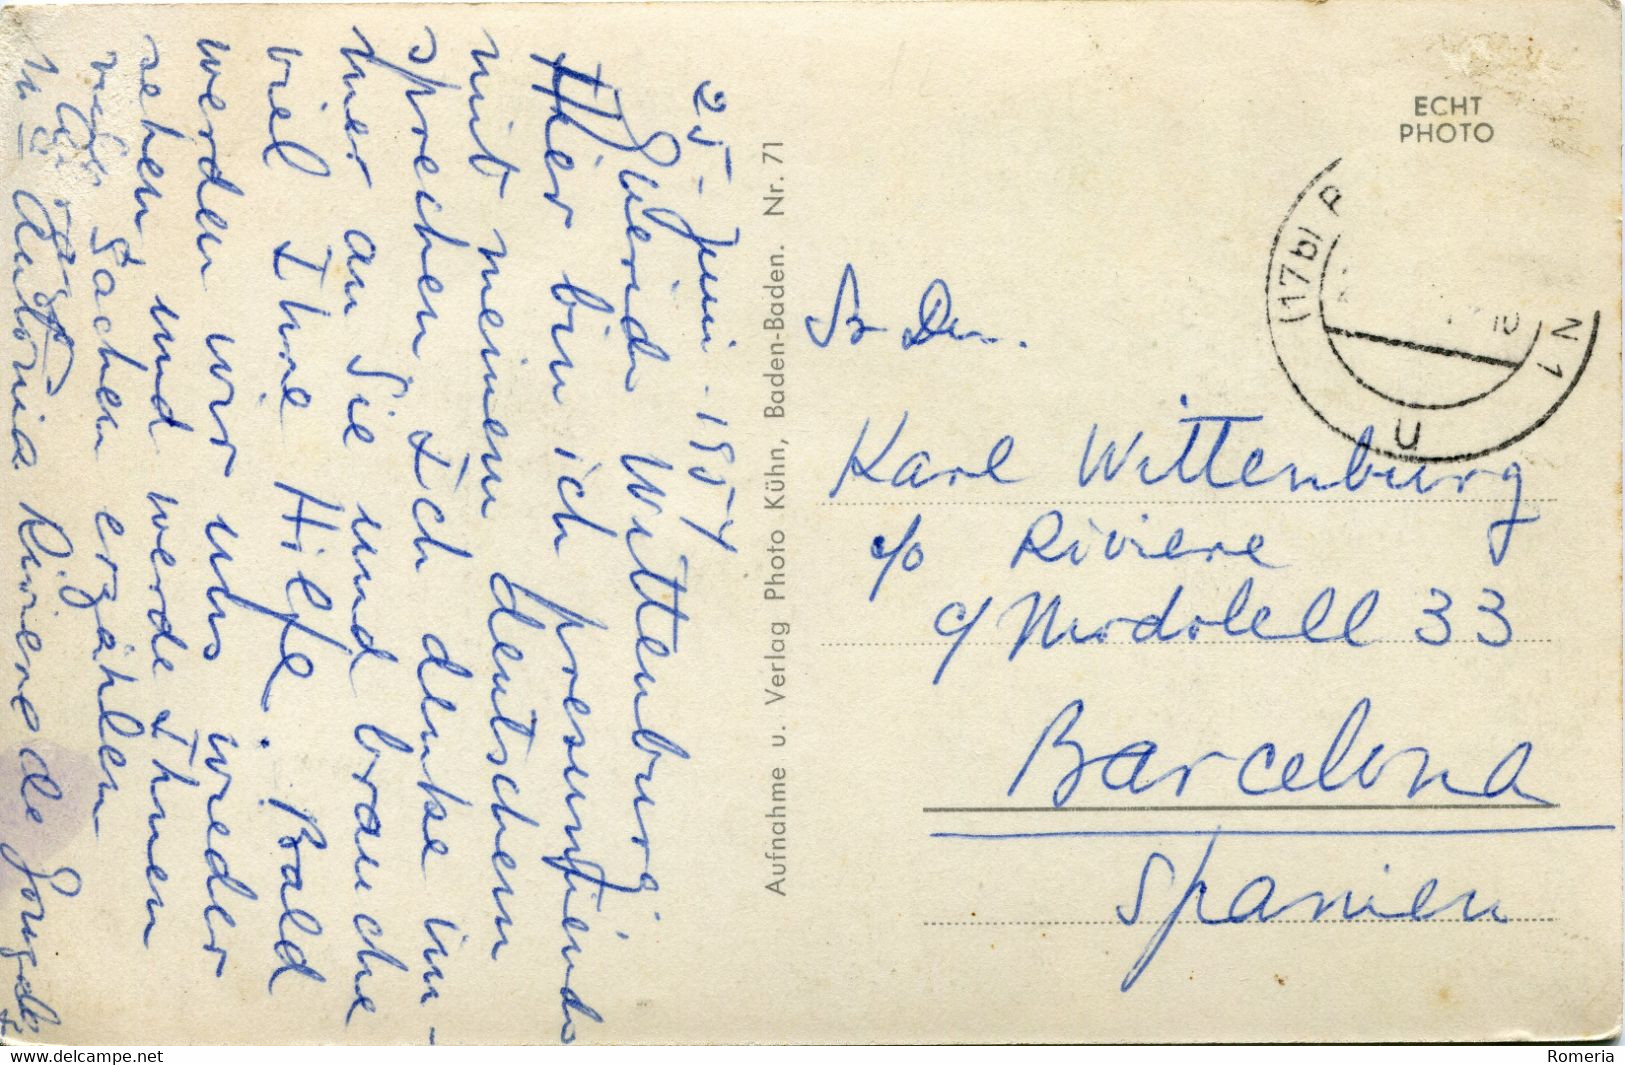 25-Juni-1954
Wittenburg
Hier bin ich presumfiendo
mit meinem deutschem
sprechen Ich denke im-
mer an Sie und brauche
viel Ihre Hilfe. Bald
werden wir uns wieder
sehen und werde Ihnen
Sachen erzählen
Ma Antonia Riviere de
Aufnahme u. Verlag Photo Kühn, Baden-Baden. Nr. 71
ECHT
PHOTO
(17b)
Sr Dn.
Karl Wittenburg
c/o Riviere
c/ Modolell 33
Barcelona
Spanien
delcampe.net
Romeria